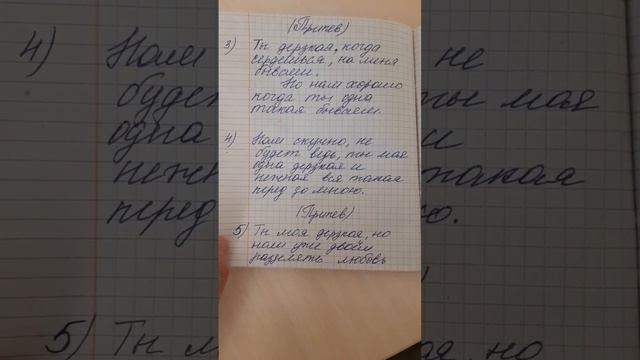 (Припев)
3) Ты дерзкая, когда
сердешься, на меня
бываеш.
Но нам хорошо
когда ты одна
такая бываеш.
4) Нам скучно, не
будет ведь, ты мая
одна дерзкая и
нежная вся такая
перед зо мною.
(Припев)
5) Ты моя дерзкая, но
нам уже двоим
разделять любовь